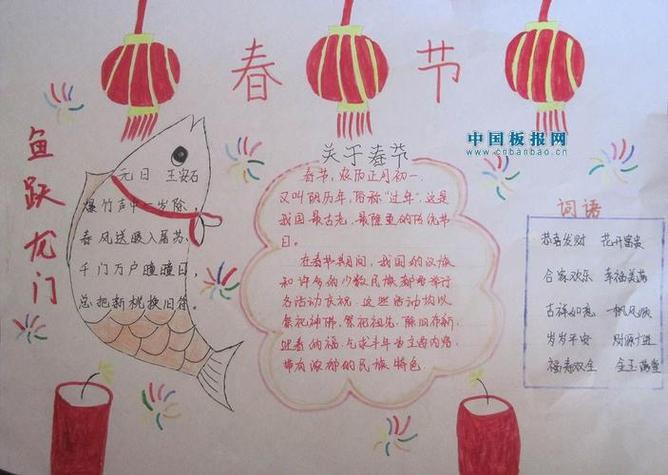 春节
中国板报网
www.cnbanbao.cn
鱼跃龙门
元日 王安石
爆竹声中一岁除,
春风送暖入屠苏,
千门万户曈曈日,
总把新桃换旧符。
关于春节
春节,农历正月初一,
又叫阴历年,俗称“过年”。这是
我国最古老,最隆重的传统节
日。
在春节期间,我国的汉族
和许多的少数民族都要举行
各活动庆祝,这些活动均以
祭祀神佛,祭祀祖先,除旧存新,
迎春纳福,气求丰年为主要内容,
带有浓郁的民族特色
词语
恭喜发财 花开富贵
合家欢乐 幸福美满
吉祥如意 一帆风顺
岁岁平安 财源广进
福寿双全 金玉满堂